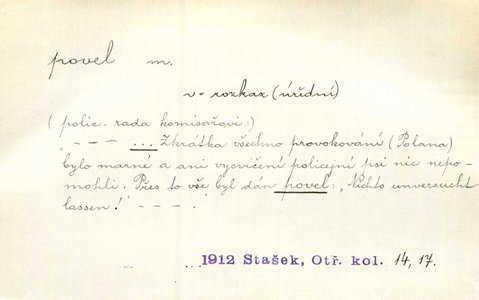 povel m.
v= rozkaz (úřední)
(polic. rada komisařovi:)
" - - - ... Zkrátka všechno provokování (Polana)
bylo marné a ani vycvičení policejní psi nic nepo-
mohli. Přes to vše byl dán povel: „Nichts unversucht
lassen!" - - - .
1912 Stašek, Otř. kol. 14, 17.